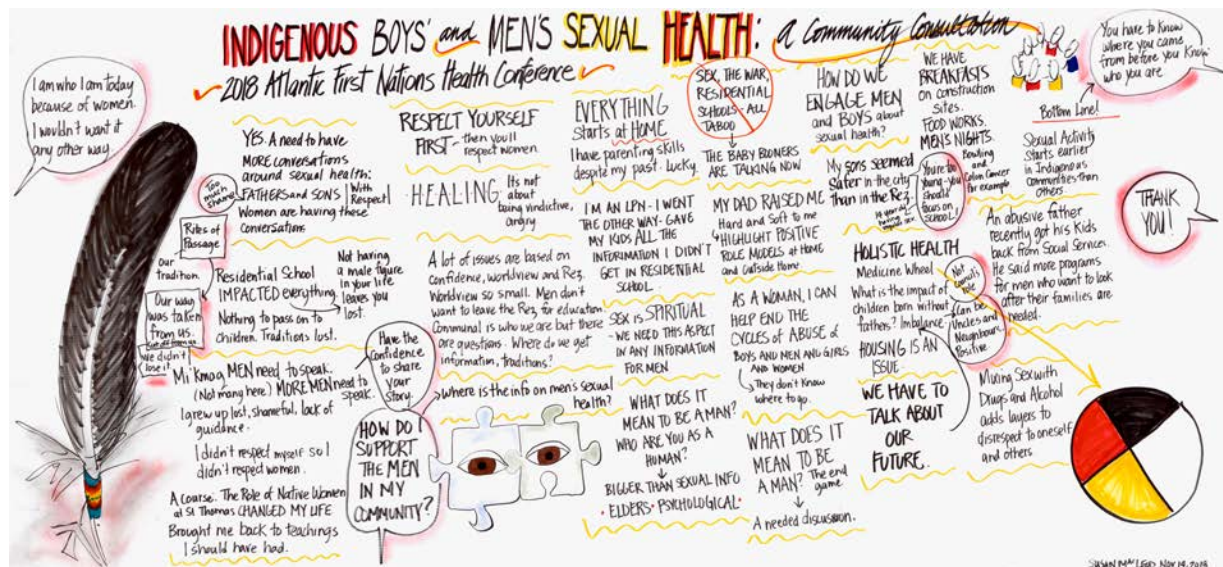 INDIGENOUS BOYS' and MEN'S SEXUAL HEALTH: a Community Consultation
2018 Atlantic First Nations Health Conference
I am who I am today
because of women.
I wouldn't want it
any other way.
YES. A need to have
MORE conversations
around sexual health:
FATHERS and SONS
With
Respect!
Women are having these
Conversations
Too
much
Share
Rites of
Passage
Our
tradition.
Our way
was taken
from us.
we didn't
lose it
Residential School
IMPACTED everything
Nothing to pass on to
Children. Traditions lost.
Not having
a male figure
in your life
leaves you
lost.
Mi'kmaq MEN need to speak.
(Not many here) MORE MEN need to
speak.
I grew up lost, shameful, lack of
guidance.
I didn't respect myself so I
didn't respect women.
A course: The Role of Native Women
at St Thomas CHANGED MY LIFE
Brought me back to teachings
I should have had.
Have the
Confidence
to share
your
Story.
HOW DO I
SUPPORT
THE MEN
IN MY
COMMUNITY?
RESPECT YOURSELF
FIRST - then you'll
respect women.
HEALING.
Its not
about
being vindictive,
angry
A lot of issues are based on
Confidence, worldview and Rez.
Worldview so small. Men don't
want to leave the Rez, for education.
Communal is who we are but there
are questions. Where do we get
information, traditions?
where is the info on men's sexual
health?
EVERYTHING
Starts at HOME
I have parenting skills
despite my past. Lucky.
I'M AN LPN - I WENT
THE OTHER WAY - GAVE
MY KIDS ALL THE
INFORMATION I DIDN'T
GET IN RESIDENTIAL
SCHOOL.
SEX IS SPIRITUAL
- WE NEED THIS ASPECT
IN ANY INFORMATION
FOR MEN
WHAT DOES IT
MEAN TO BE A MAN?
WHO ARE YOU AS A
HUMAN?
BIGGER THAN SEXUAL INFO
• ELDERS • PSYCHOLOGICAL •
SEX, THE WAR,
RESIDENTIAL
SCHOOLS - ALL
TABOO
THE BABY BOOMERS
ARE TALKING NOW
MY DAD RAISED ME
Hard and Soft to me
HIGHLIGHT POSITIVE
ROLE MODELS at Home
and Outside Home
AS A WOMAN, I CAN
HELP END THE
CYCLES OF ABUSE of
BOYS AND MEN AND GIRLS
AND WOMEN
They don't Know
where to go.
WHAT DOES IT
MEAN TO BE
A MAN?
The end
game
A needed discussion.
HOW DO WE
ENGAGE MEN
and BOYS about
sexual health?
My sons seemed
Safer in the city
than in the Rez.
You're too
young - you
should
focus on
SCHOOL!
HOLISTIC HEALTH
Medicine Wheel
What is the impact of
children born without
fathers? Imbalance
Can be
Uncles and
Neighbours
Positive
HOUSING IS AN
ISSUE.
WE HAVE TO
TALK ABOUT
OUR
FUTURE.
WE HAVE
BREAKFASTS
ON construction
SITES.
FOOD WORKS.
MEN'S NIGHTS.
Bowling
and
Colon Cancer
for example
You have to Know
where you came
from before you Know
who you are.
Bottom Line!
Sexual Activity
starts earlier
in Indigenous
Communities than
Others.
THANK
YOU!
An abusive father
recently got his Kids
back from Social Services.
He said more programs
for men who want to look
after their families are
needed.
Mixing Sex with
Drugs and Alcohol
adds layers to
disrespect to oneself
and others
SUSAN MacLEOD NOV 14, 2018